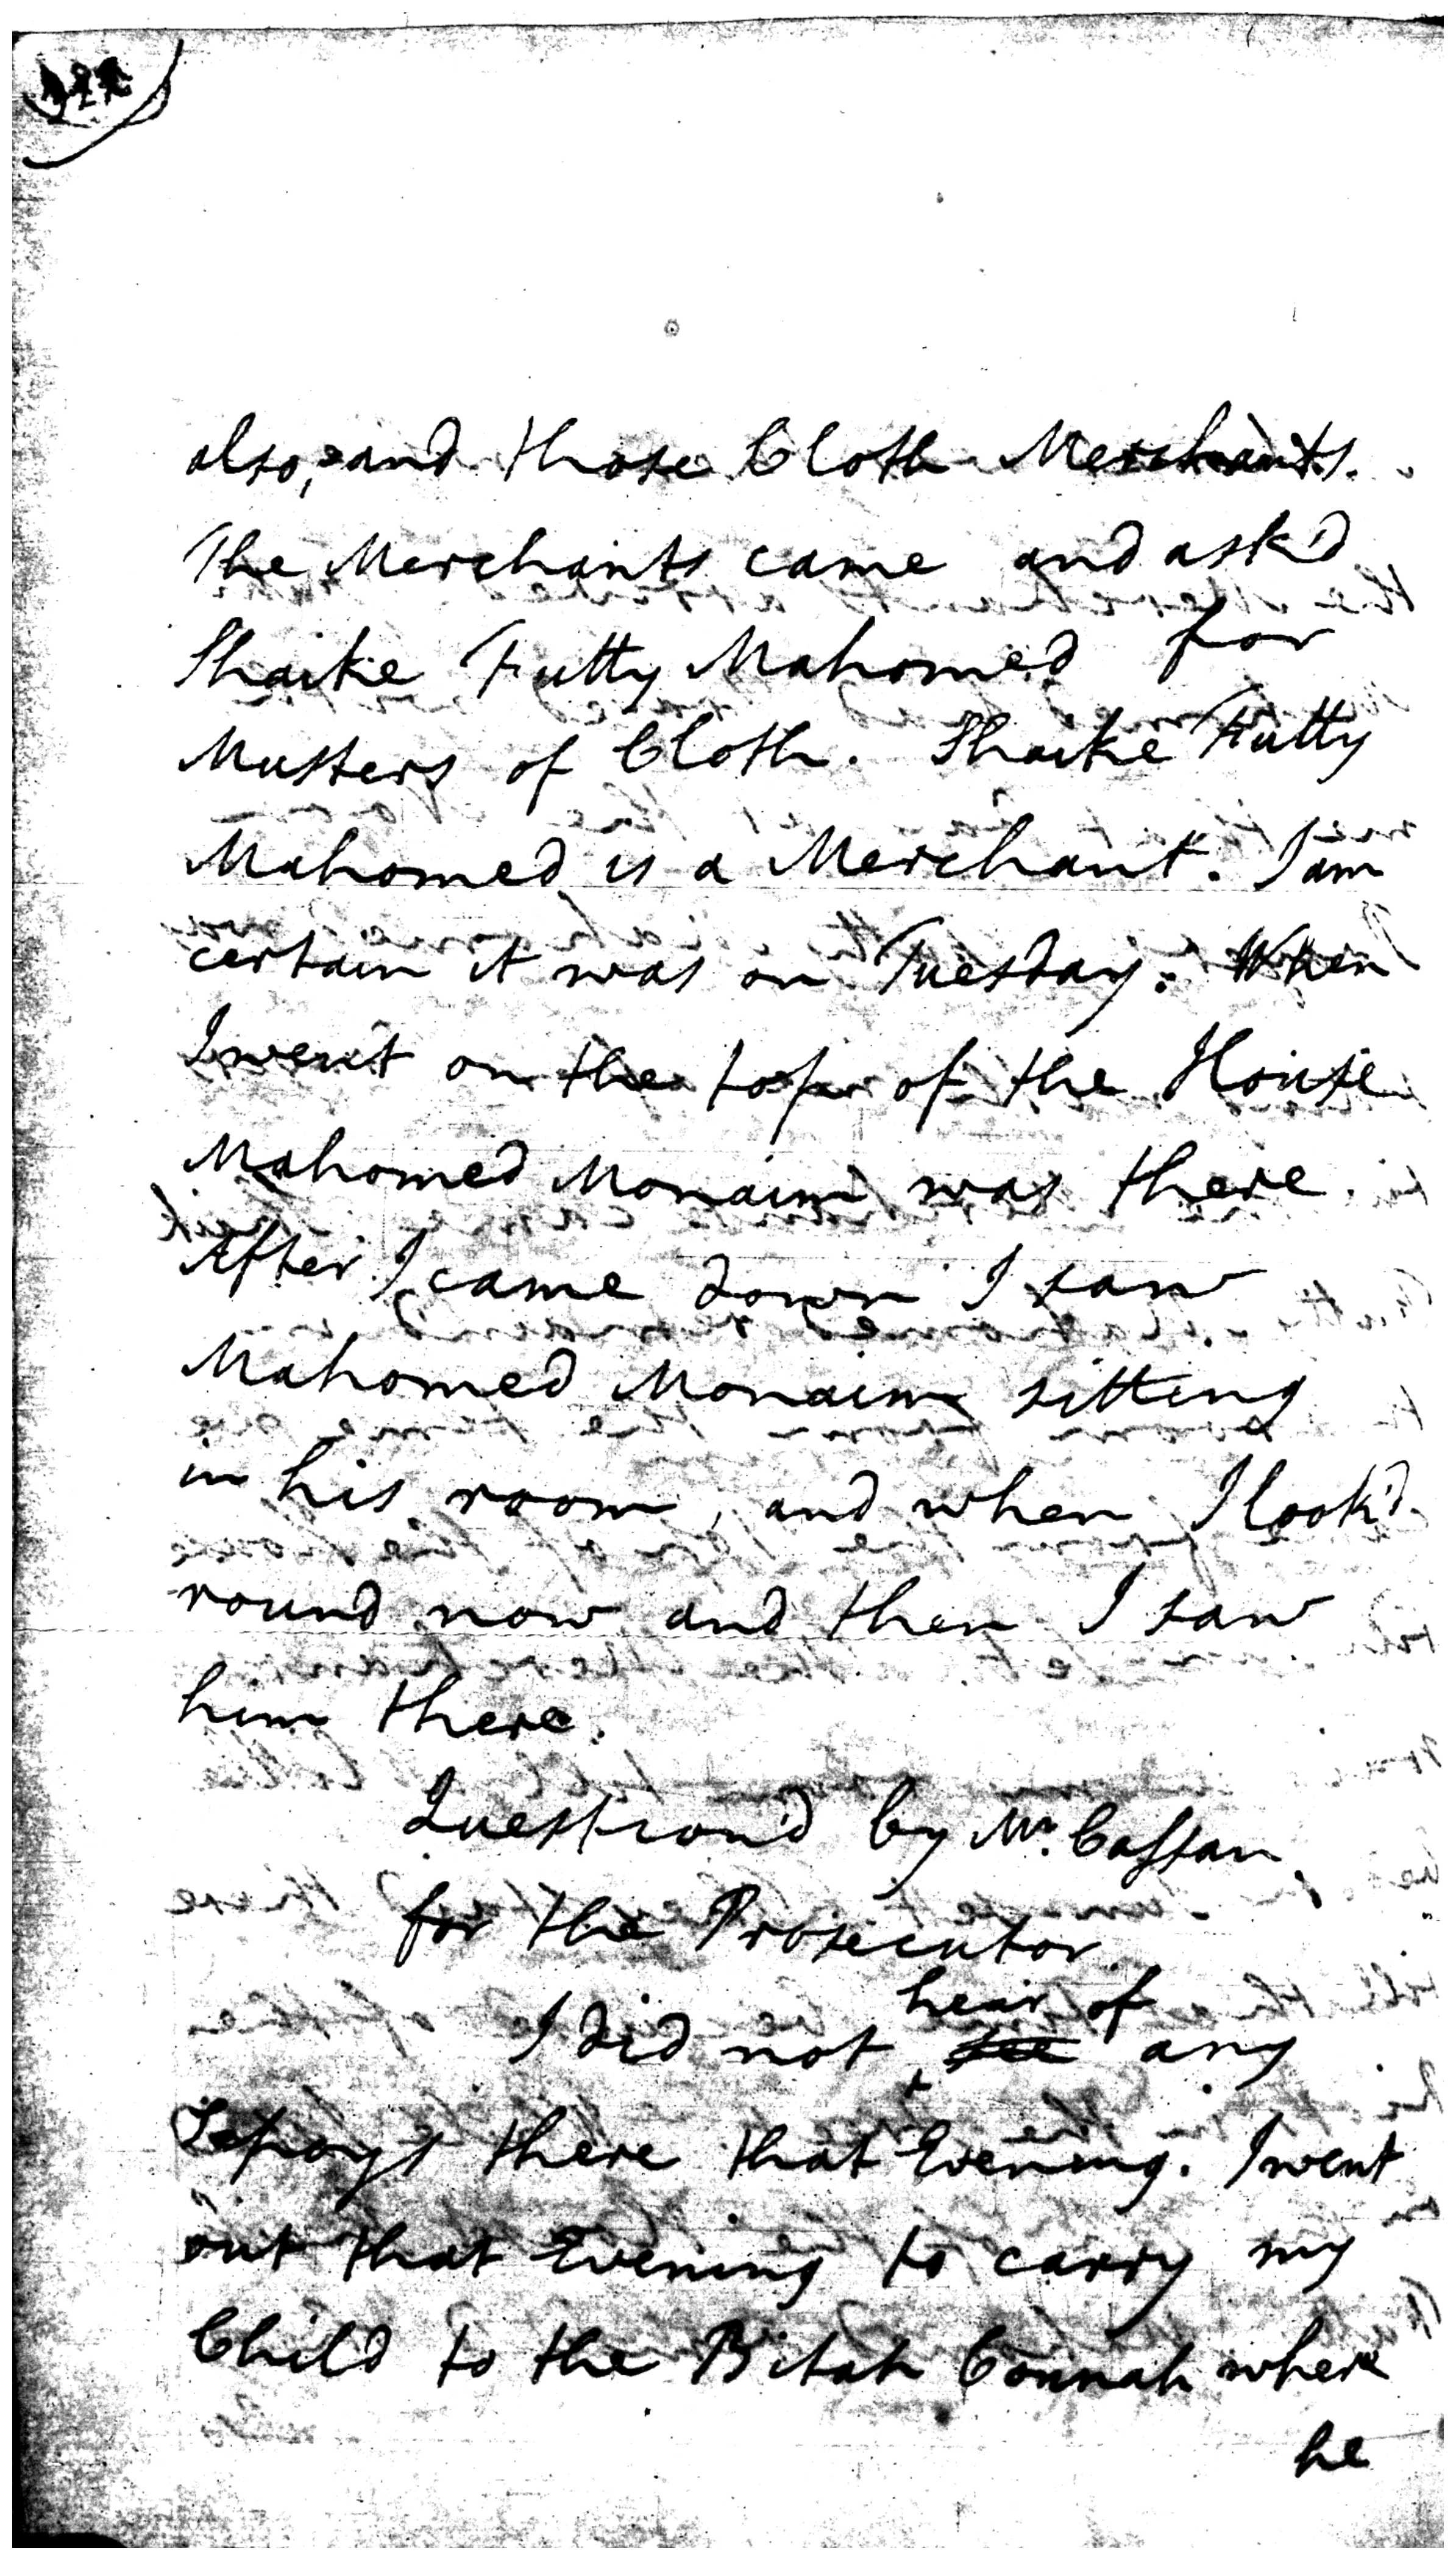 also, and those Cloth Merchants.
The Merchants came and ask'd
Shaike Futty Mahomed for
Musters of Cloth. Shaike Futty
Mahomed is a Merchant. I am
certain it was on Tuesday. When
I went on the top of the House
Mahomed Monaim was there.
After I came down I saw
Mahomed Monaim sitting
in his room, and when I look'd
round now and then I saw
him there.
Question'd by Mr. Cassan
for the Prosecutor.
hear of
I did not see any
Sepoys there that Evening. I went
out that Evening to carry my
Child to the Bitah Connah where
he